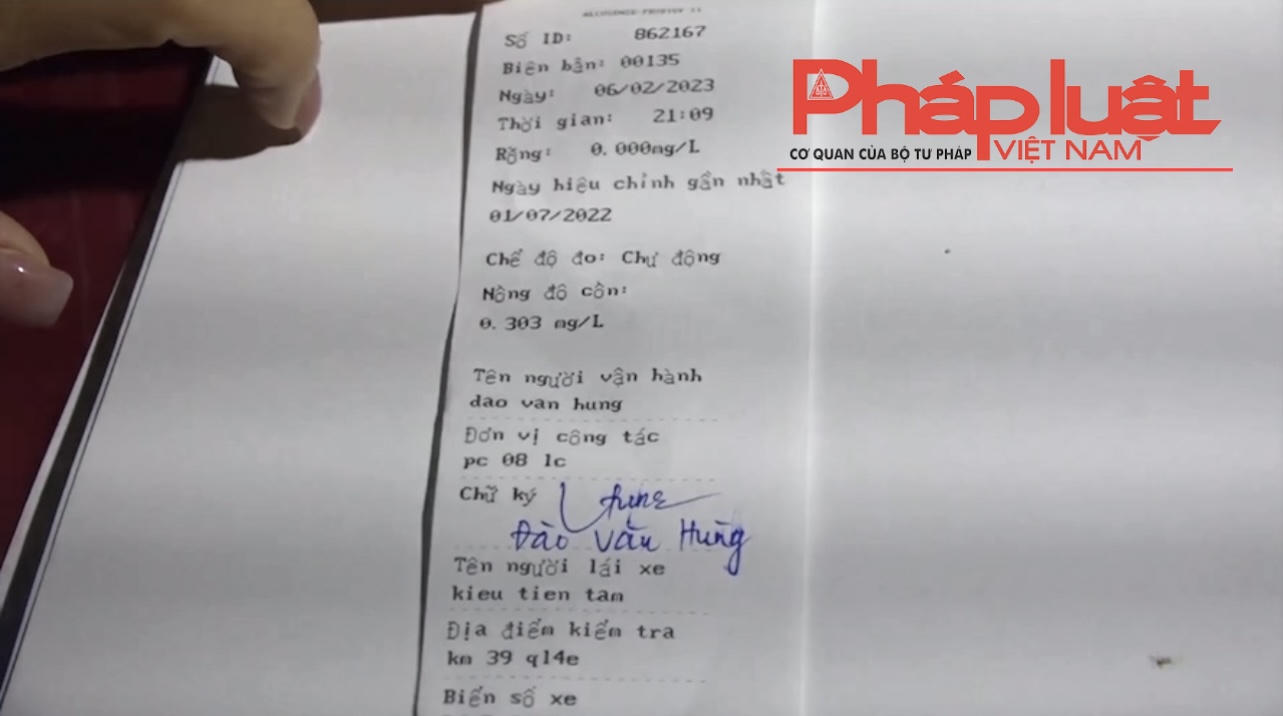 Số ID: 862167
Biên bản: 00135
Ngày: 06/02/2023
Thời gian: 21:09
Rỗng: 0.000mg/L
Ngày hiệu chỉnh gần nhất
01/07/2022
Chế độ đo: Chư động
Nồng độ cồn:
0.303 mg/L
Tên người vận hành
dao van hung
Đơn vị công tác
pc 08 lc
Chữ ký
Đào Văn Hùng
Tên người lái xe
kieu tien tam
Địa điểm kiểm tra
km 39 ql4e
Biển số xe
Pháp luật
CƠ QUAN CỦA BỘ TƯ PHÁP VIỆT NAM